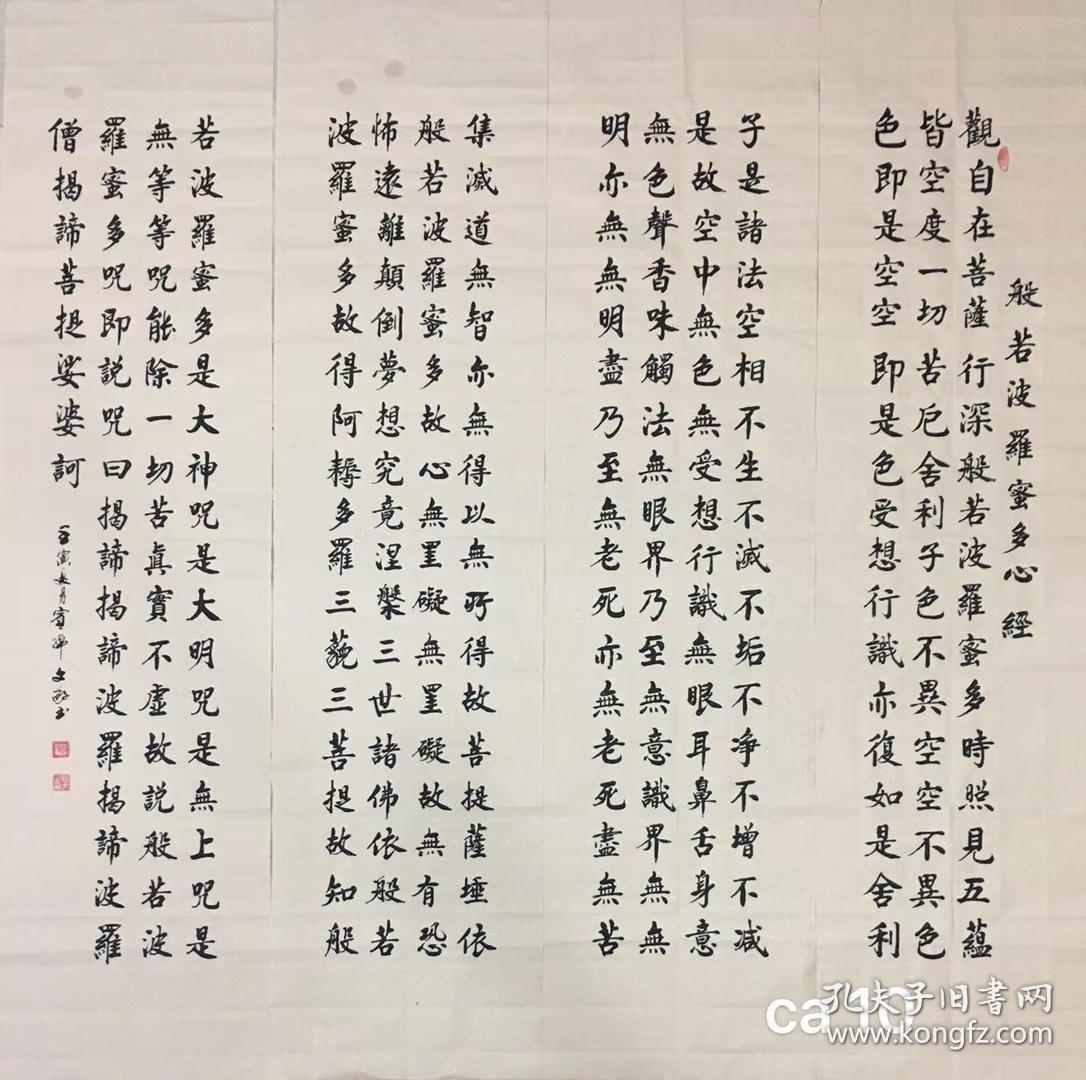 般若波羅蜜多心經
觀自在菩薩行深般若波羅蜜多時照見五蘊
皆空度一切苦厄舍利子色不異空空不異色
色即是空空即是色受想行識亦復如是舍利
子是諸法空相不生不滅不垢不净不增不減
是故空中無色無受想行識無眼耳鼻舌身意
無色聲香味觸法無眼界乃至無意識界無無
明亦無無明盡乃至無老死亦無老死盡無苦
集滅道無智亦無得以無所得故菩提薩埵依
般若波羅蜜多故心無罣礙無罣礙故無有恐
怖遠離顛倒夢想究竟涅槃三世諸佛依般若
波羅蜜多故得阿耨多羅三藐三菩提故知般
若波羅蜜多是大神咒是大明咒是無上咒是
無等等咒能除一切苦真實不虛故説般若波
羅蜜多咒即説咒曰揭諦揭諦波羅揭諦波羅
僧揭諦菩提娑婆訶
壬寅
書
ca 10
孔夫子旧书网
www.kongfz.com